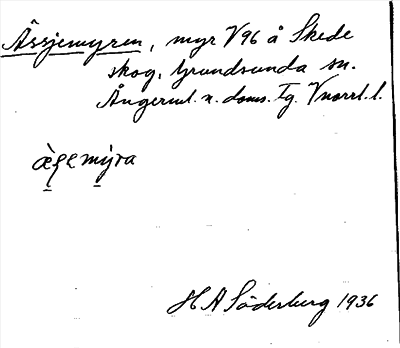 Åssjemyren, myr V96 å Skede
skog, Grundsunda sn.
Ångerml. n. doms. Tg. Vnorrl. l.
H A Söderberg 1936